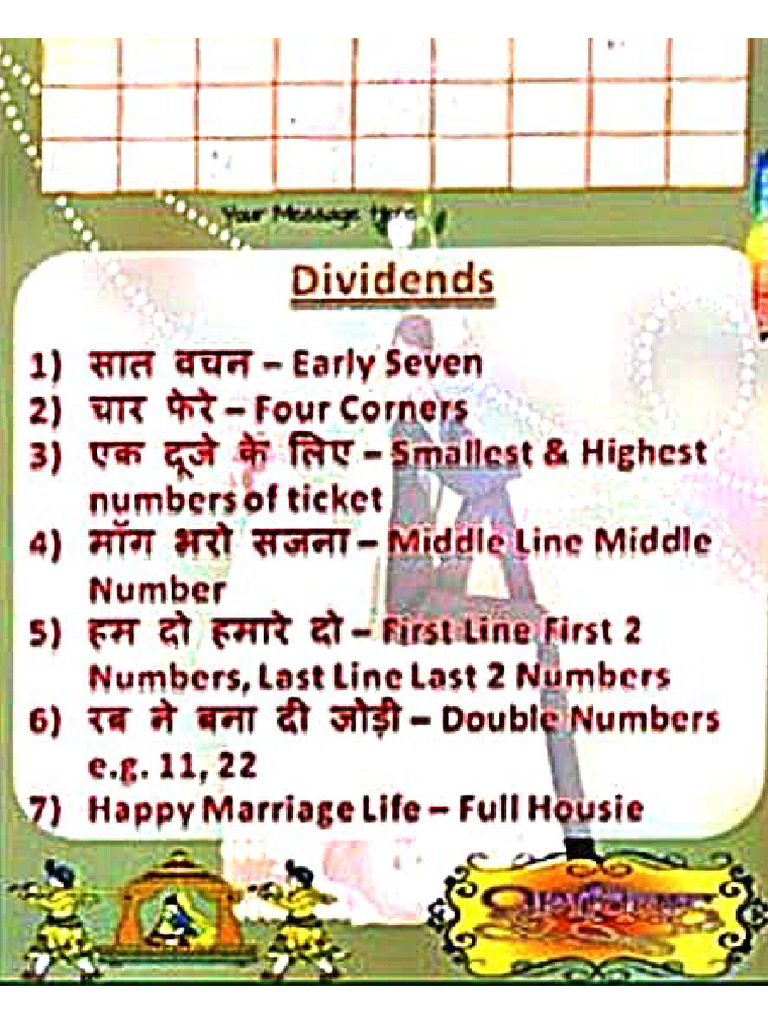 Your Message Here
Dividends
1) सात वचन – Early Seven
2) चार फेरे – Four Corners
3) एक दूजे के लिए – Smallest & Highest
numbers of ticket
4) माँग भरो सजना – Middle Line Middle
Number
5) हम दो हमारे दो – First Line First 2
Numbers, Last Line Last 2 Numbers
6) रब ने बना दी जोड़ी – Double Numbers
e.g. 11, 22
7) Happy Marriage Life – Full Housie